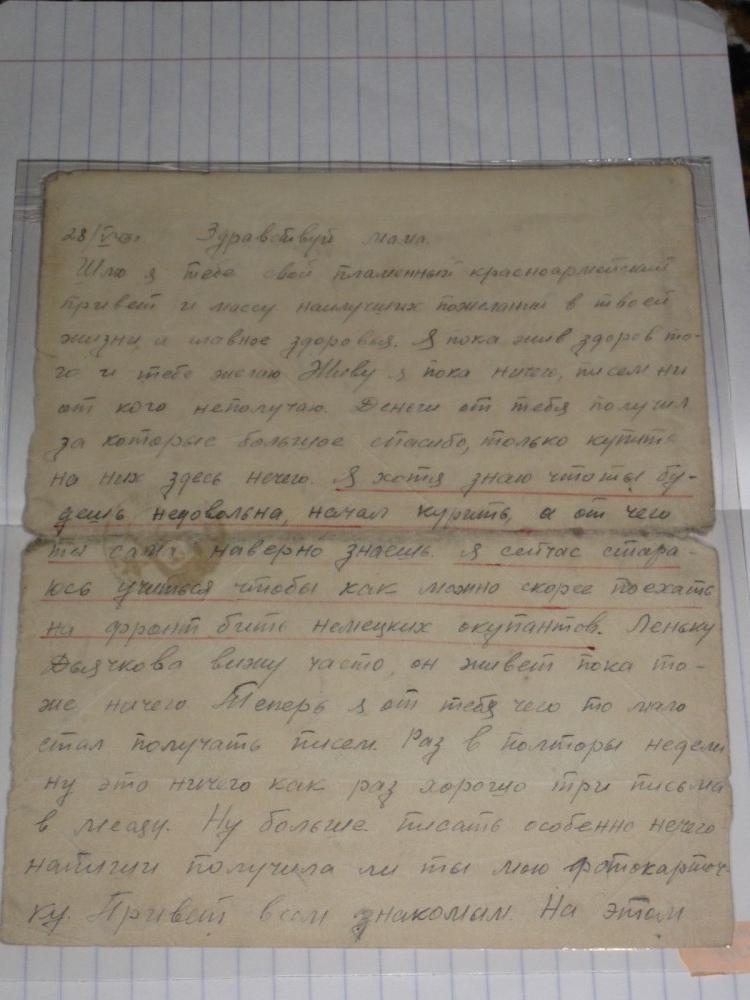 Здравствуй мама.
Шлю я тебе свой пламенный красноармейский
привет и массу наилучших пожеланий в твоей
жизни и главное здоровья. Я пока жив здоров то-
го и тебе желаю Живу я пока ничего, писем ни
от кого неполучаю. Деньги от тебя получил
за которые большое спасибо, только купить
на них здесь нечего. Я хотя знаю что ты бу-
дешь недовольна, начал курить, а от чего
ты сама наверно знаешь. Я сейчас стара-
юсь учиться чтобы как можно скорее поехать
на фронт бить немецких окупантов. Леньку
Дьячкова вижу часто, он живет пока то-
же ничего. Теперь я от тебя чего то мало
стал получать писем. Раз в полторы недели
ну это ничего как раз хорошо три письма
в месяц. Ну больше писать особенно нечего
напиши получила ли ты мою фотокарточ-
ку. Привет всем знакомым. На этом